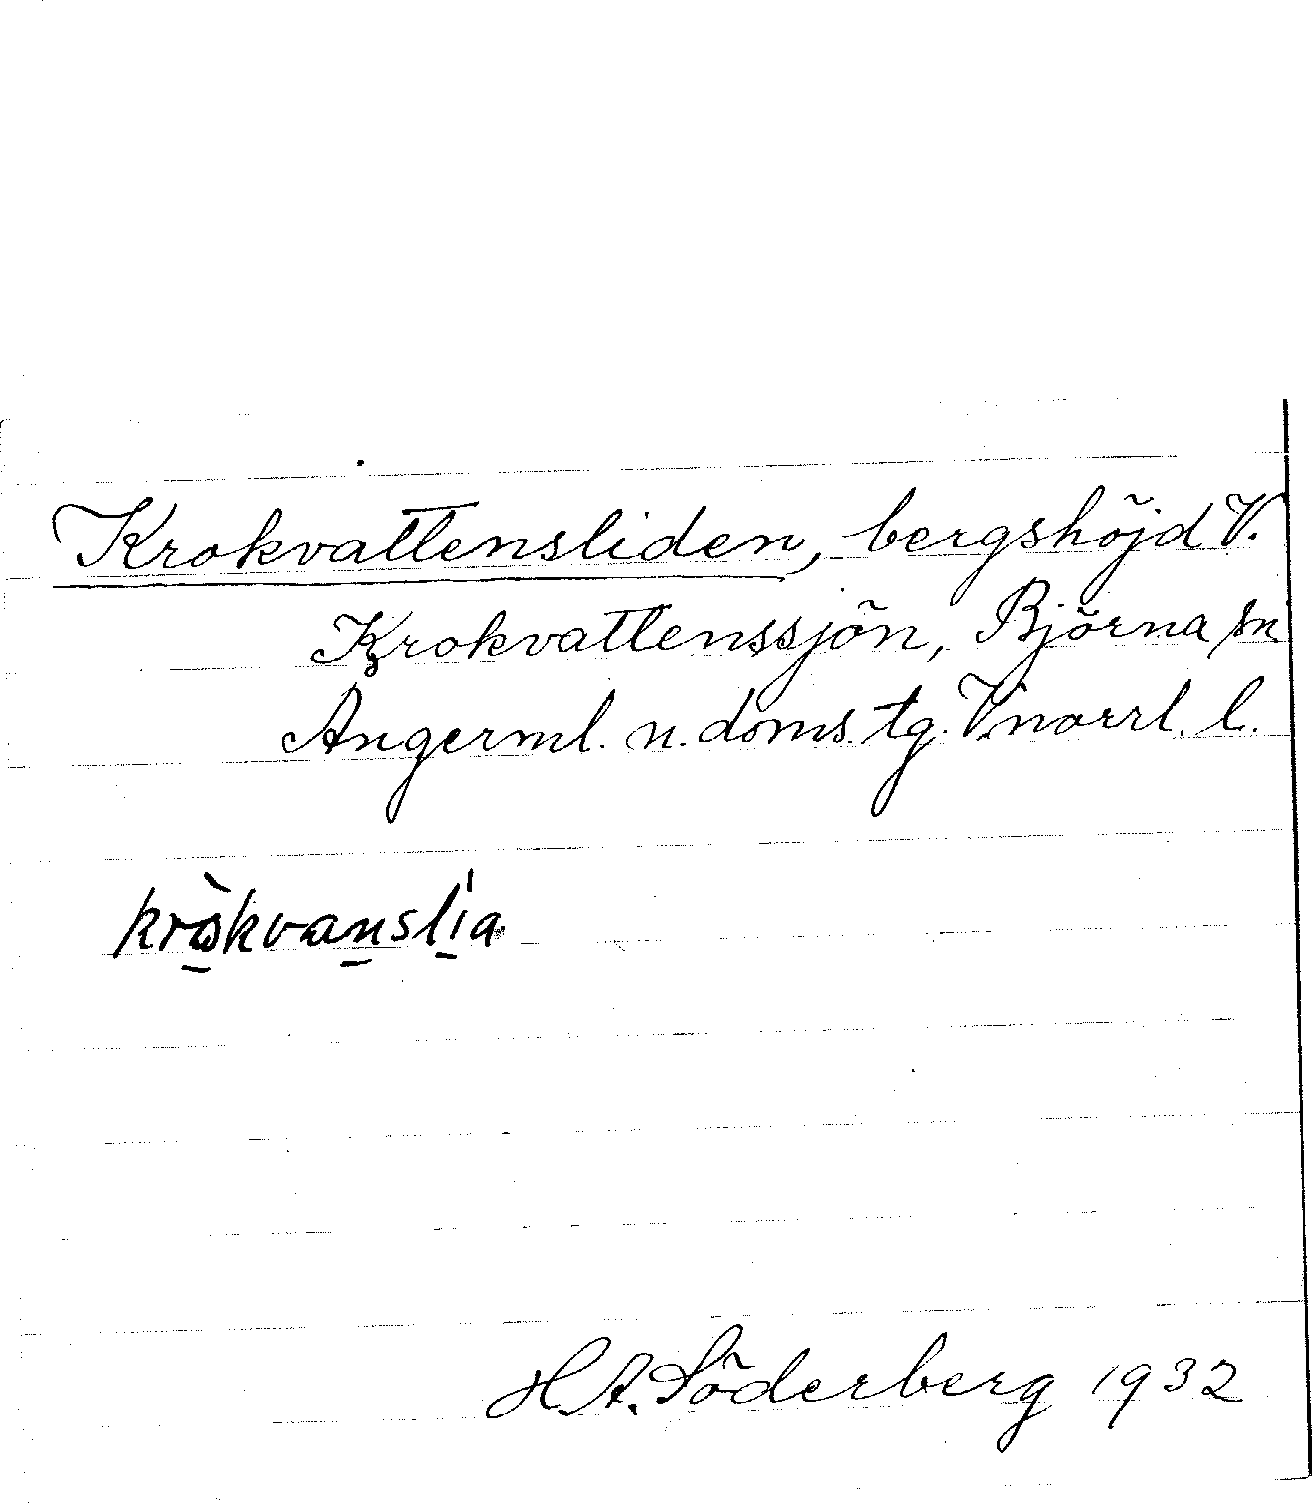 Krokvattensliden, bergshöjd V.
Krokvattenssjön, Björna sn
Angerml. n. doms. tg. V.norrl. l.
kròkvanslia
H.A. Söderberg 1932